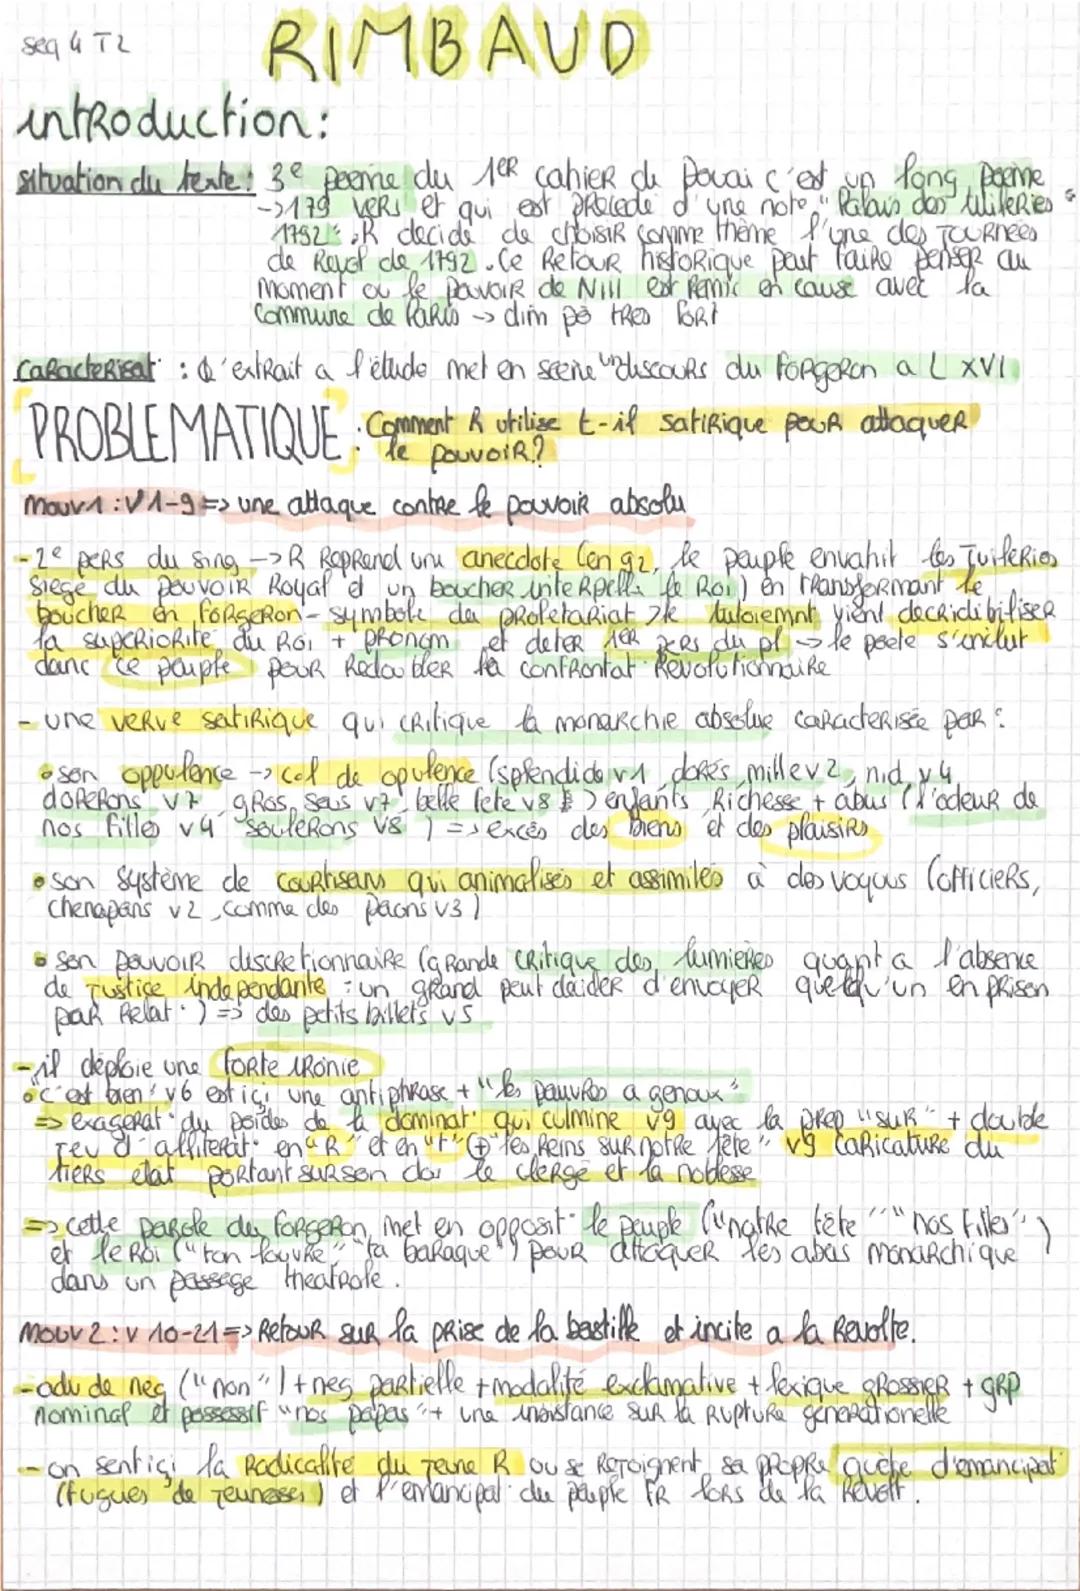 seq 4 T2
RIMBAUD
introduction:
situation du texte: 3e poeme du 1ER cahier de Douai c'est un long poeme
->179 vers et qui est précédé d'une note "Palais des tuileries
1792". R decide de choisir comme thème l'une des journees
de Revol de 1792. Ce Retour historique peut faire penser au
moment ou le pouvoir de NIII est Remis en cause avec la
Commune de Paris -> dim po tres fort
Caracterisat° : l'extrait a l'étude met en scène un discours du forgeron a L XVI
PROBLEMATIQUE : Comment R utilise t-il satirique pour attaquer
le pouvoir?
Mouv1 : V1-9 => une attaque contre le pouvoir absolu
- 2e pers du sing -> R Reprend une anecdote (en 92, le peuple envahit les Tuileries
siege du pouvoir Royal et un boucher interpelle le Roi) en transformant le
boucher en forgeron - symbole du proletariat le tutoiemnt vient decridibiliser
la superiorité du Roi + pronom et deter 1ER pers du pl -> le poete s'inclut
danc ce peuple pour Redoubler la confrontat° Revolutionnaire
- une verve satirique qui critique la monarchie absolue caracterisée par :
• son oppulence -> col de opulence (splendide v1 dorés mille v2, nid v4
doperons v7 gros sous v7, belle fete v8) enfants Richesse + abus (l'odeur de
nos filles v4 soulerons v8 ) => excès des biens et des plaisirs
• son système de courtisans qui animalisés et assimilés à des voyous (officiers,
chenapans v2, comme des paons v3)
• son pouvoir discretionnaire (grande critique des lumieres quant a l'absence
de justice independante : un grand peut decider d'envoyer quelqu'un en prison
par Relat°) => des petits billets v5
- il déploie une forte ironie
• "c'est bien" v6 est ici une antiphrase + "les pauvres a genoux"
=> exagerat° du poids de la dominat° qui culmine v9 avec la prep "sur" + double
jeu d'alliterat° en "R" et en "t" (+) "tes Reins sur notre tête" v9 caricature du
tiers etat portant sur son dos le clergé et la noblesse
=> cette parole du forgeron met en opposit° le peuple ("notre tête" "nos filles")
et le Roi ("ton louvre", "ta baraque") pour attaquer les abus monarchique
dans un passage theatrale.
Mouv 2 : v 10-21 => Retour sur la prise de la bastille et incite a la Revolte.
- adv de neg ("non") + neg partielle + modalité exclamative + lexique grossier + grp
nominal et possessif "nos papas" + une insistance sur la rupture generationelle
- on sent ici la Radicalité du jeune R ou se Rejoignent sa propre quête d'emancipat°
(fugues de jeunesses) et l'emancipat° du peuple FR lors de la Revolt°.